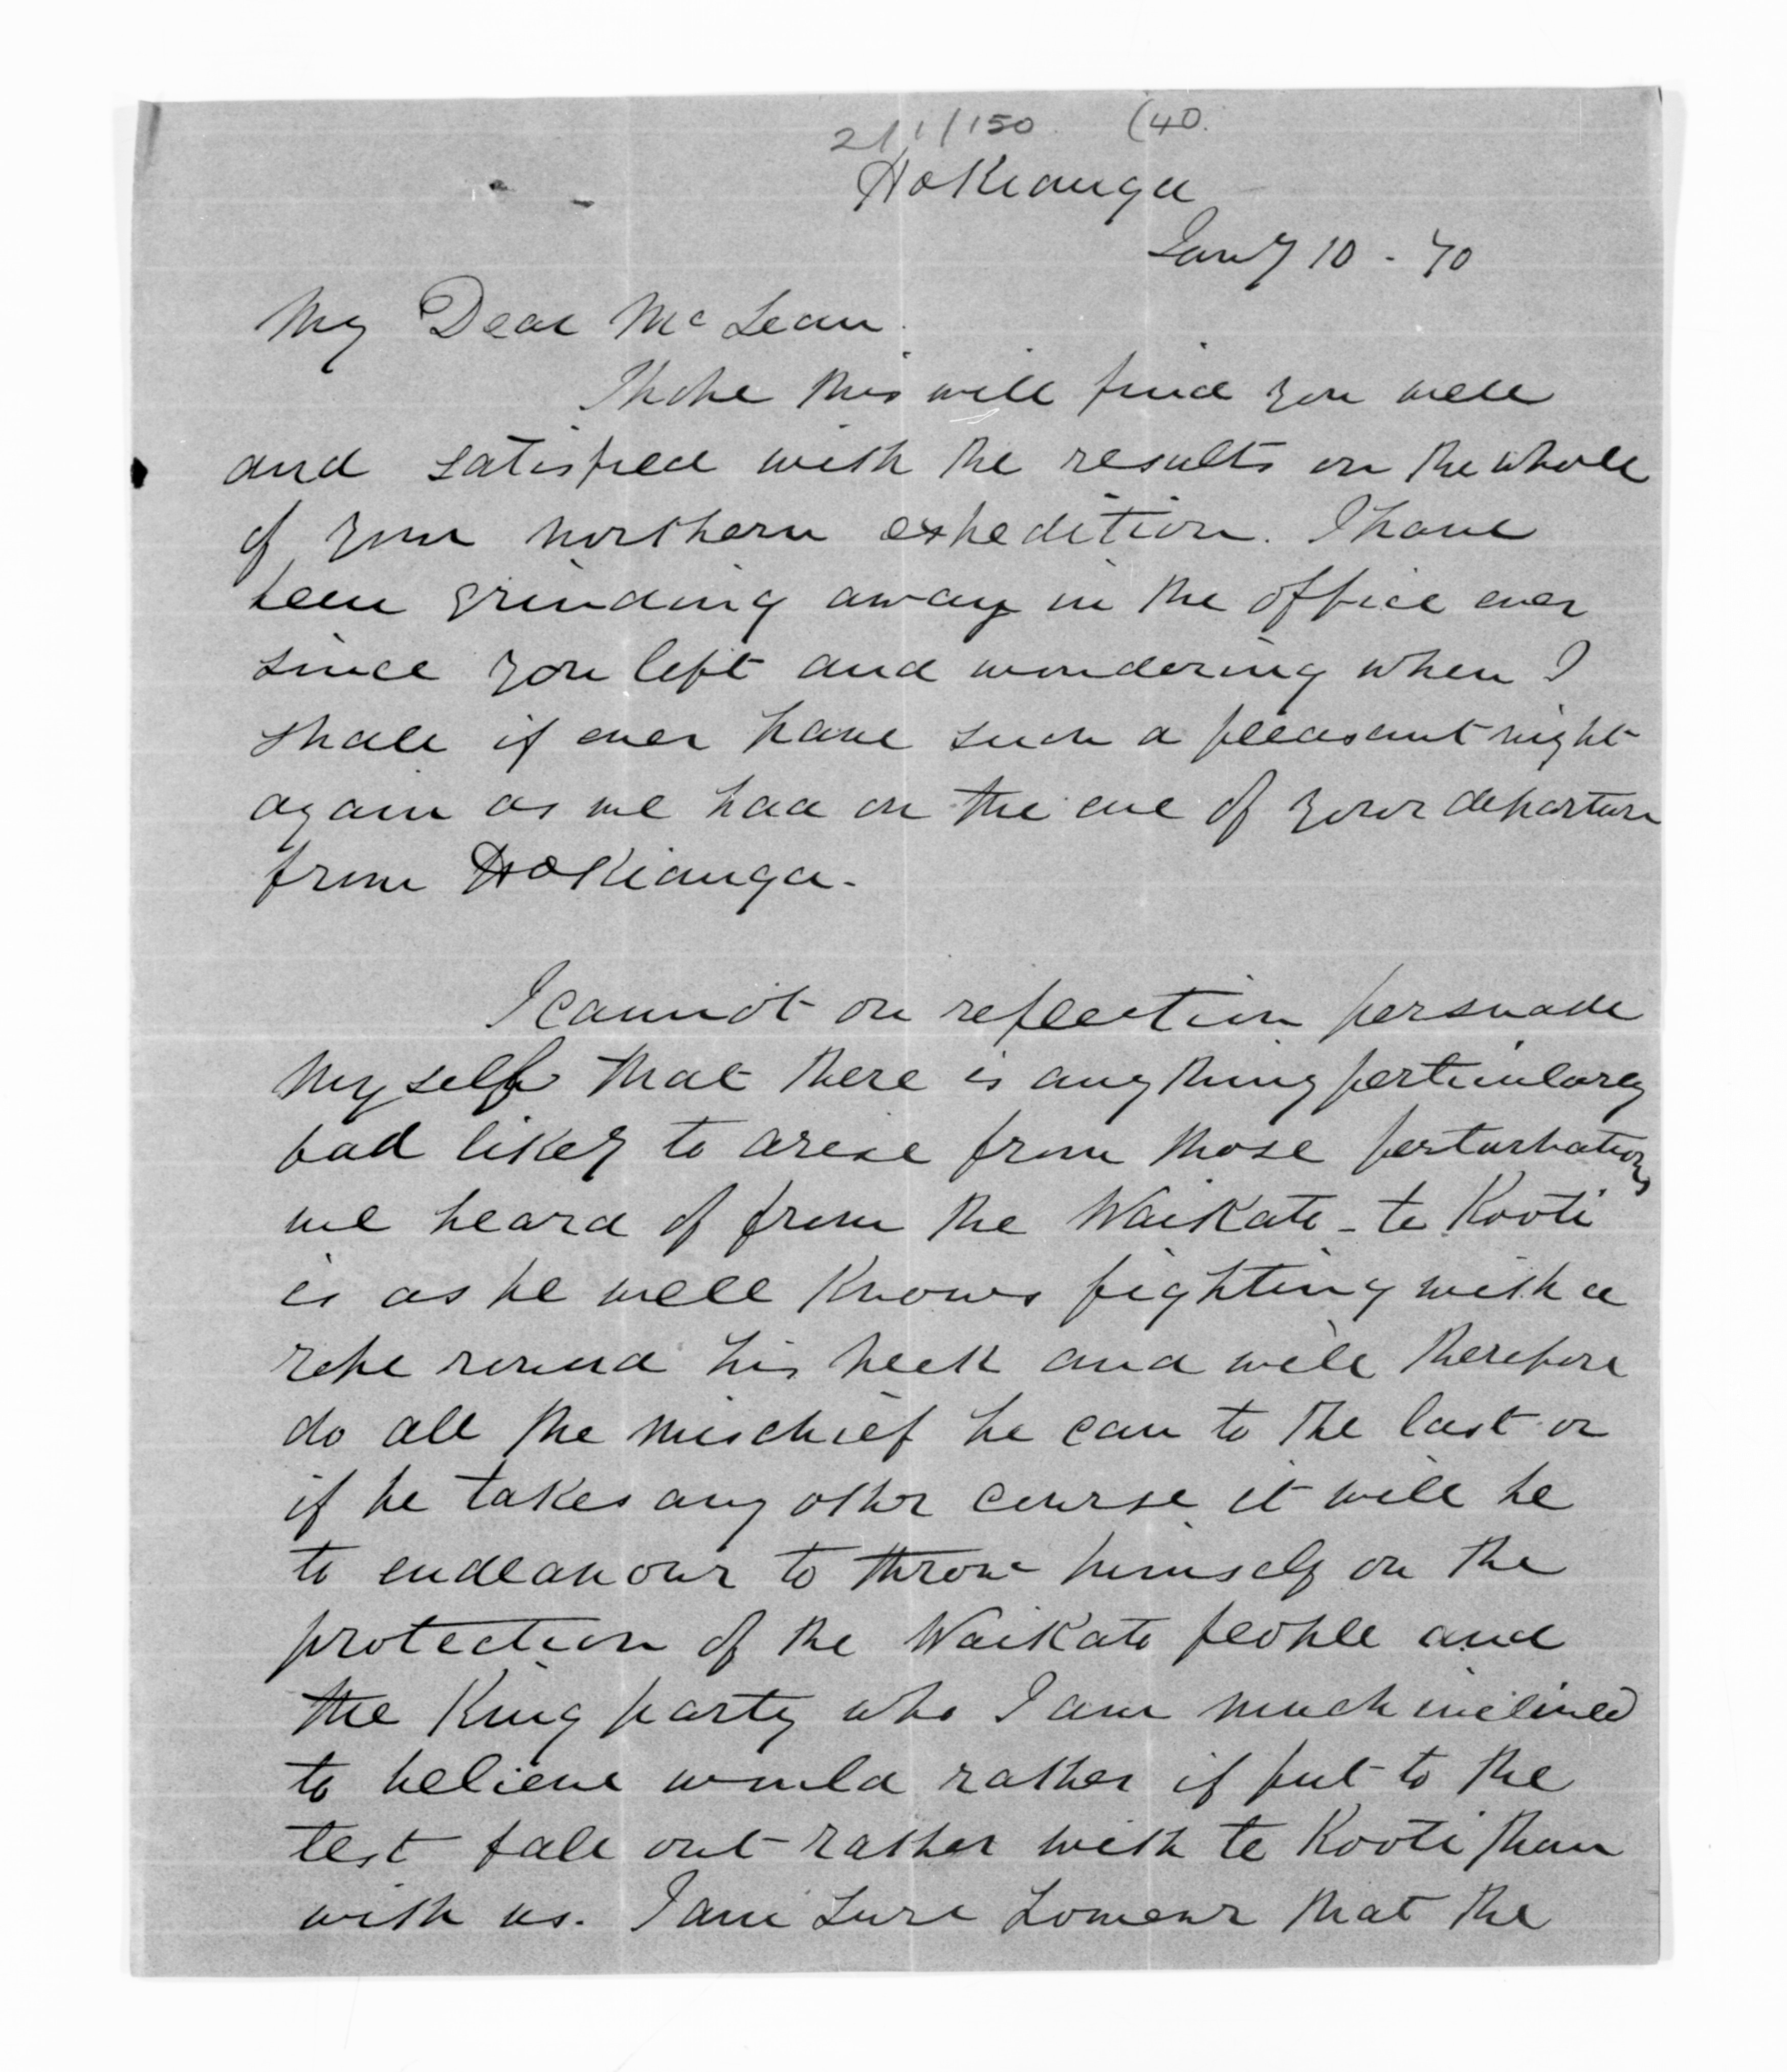 21/1/150 (40.
Hokianga
Jany 10 - 70
My Dear McLean.
I hope this will find you well
and satisfied with the results on the whole
of your northern expedition. I have
been grinding away in the office ever
since you left and wondering when I
shall if ever have such a pleasant night
again as we had on the eve of your departure
from Hokianga.
I cannot on reflection persuade
myself that there is anything perticularly
bad likely to arise from those perturbations
we heard of from the Waikato - te Kooti
is as he well knows fighting with a
rope round his neck and will therefore
do all the mischief he can to the last or
if he takes any other course it will be
to endeavour to throw himself on the
protection of the Waikato people and
the King party who I am much inclined
to believe would rather if put to the
test fall out rather with te Kooti than
with us. I am sure somehow that the